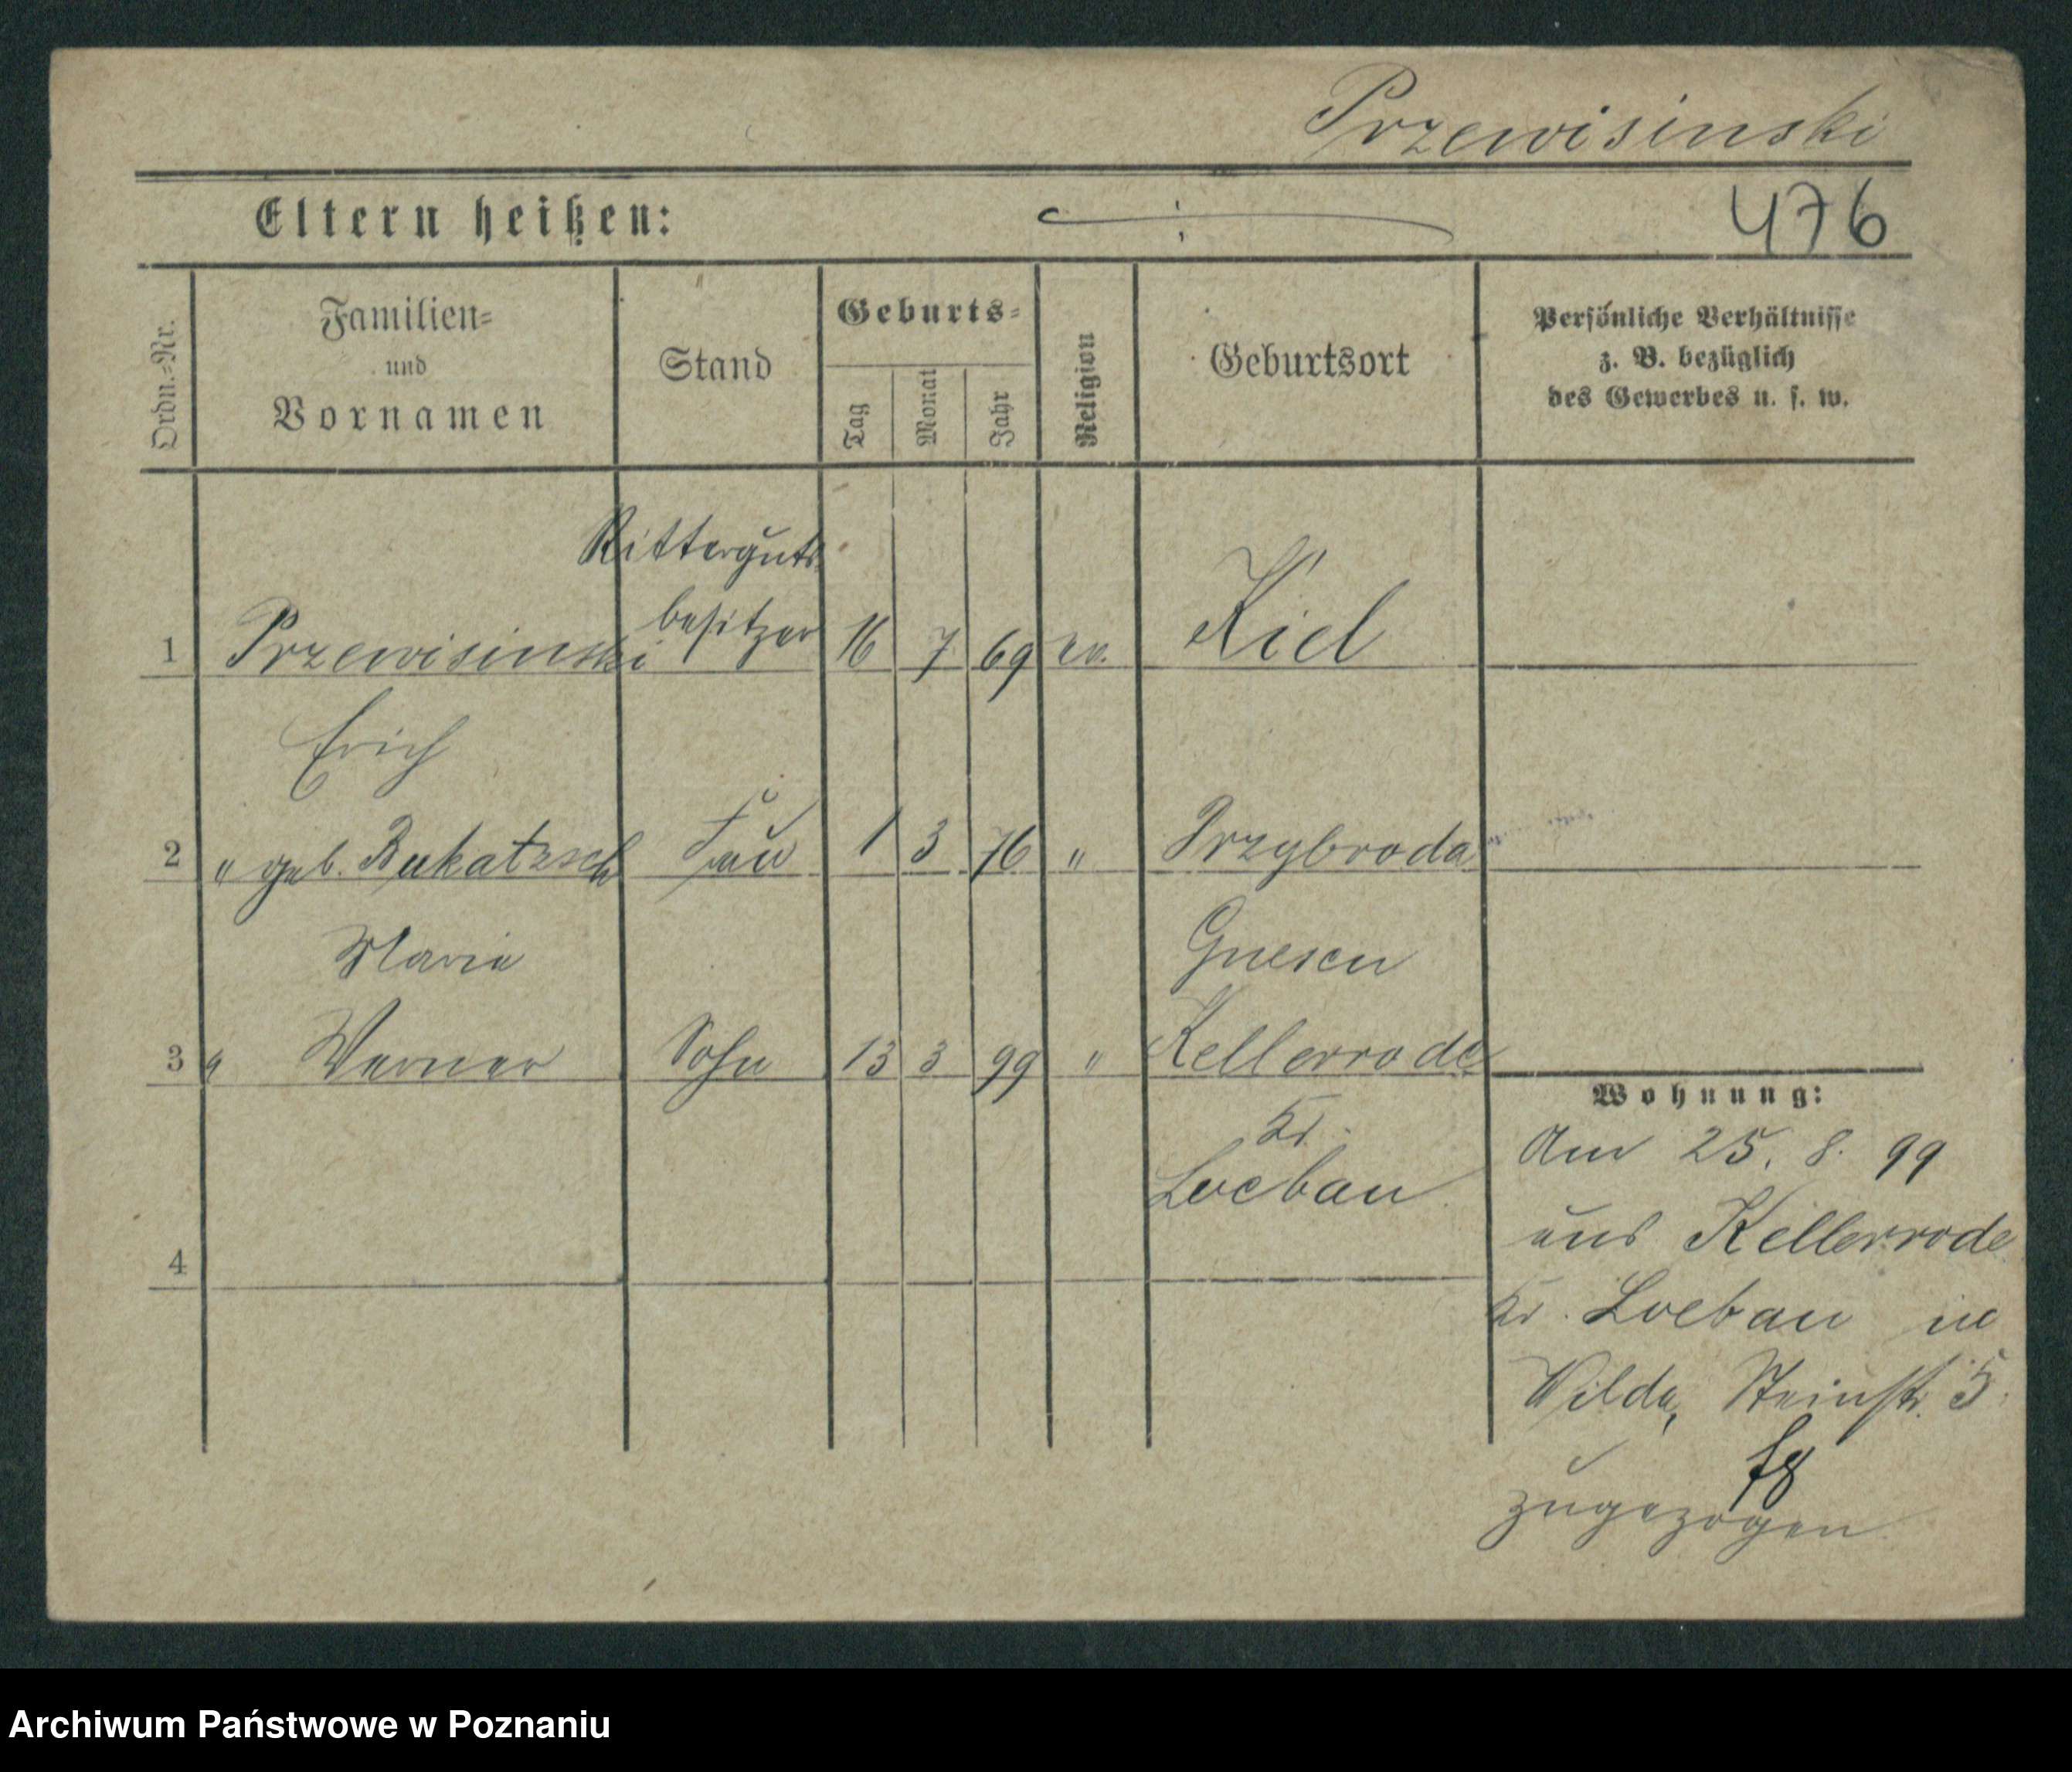 Przewisinski
Eltern heißen:
476
Ordn.=Nr.
Familien=
und
Vornamen
Stand
Geburts=
Tag
Monat
Jahr
Religion
Geburtsort
Persönliche Verhältnisse
z. B. bezüglich
des Gewerbes u. s. w.
Ritterguts
besitzer
1 Przewisinski 16 7 69 ev. Kiel
Erich
2 " geb. Bukatzsch Frau 1 3 76 " Przybroda
Maria Gnesen
3 " Werner Sohn 13 3 99 " Kellerrode
Kr.
Loebau
4
Wohnung:
Am 25. 8. 99
aus Kellerrode
Kr. Loebau in
Wilda, Steinstr. 5.
zugezogen
Archiwum Państwowe w Poznaniu